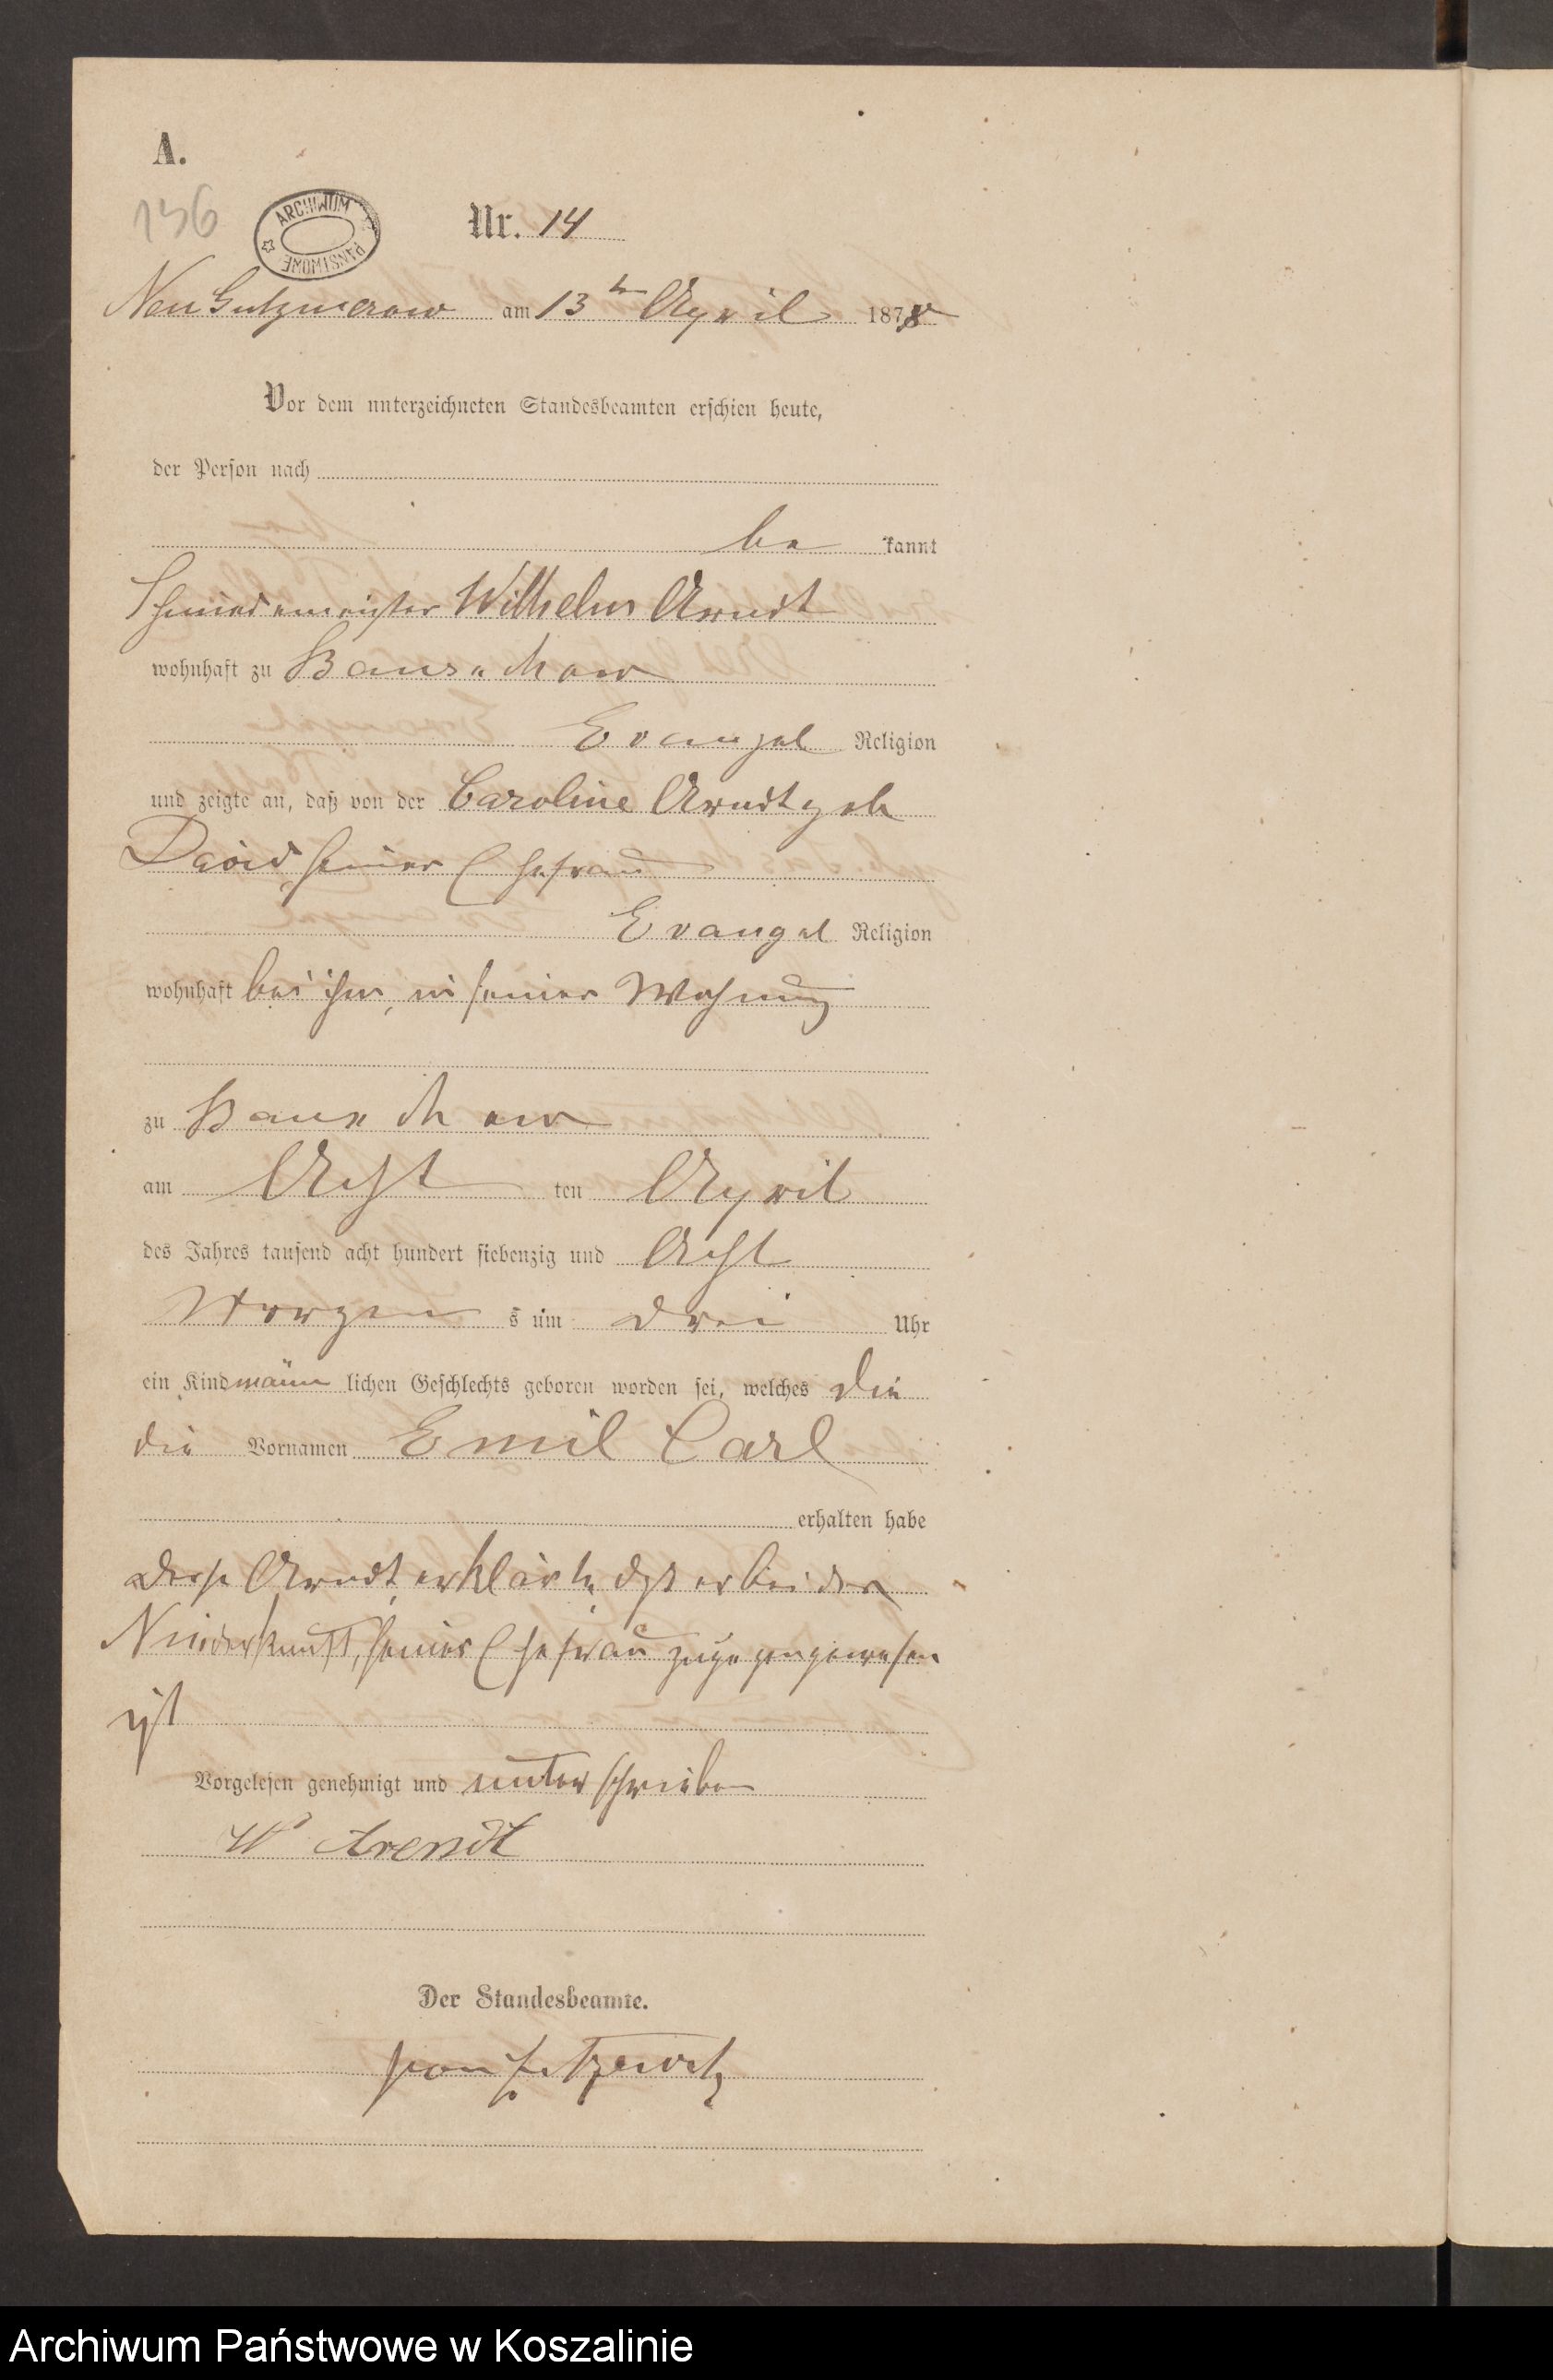 A.
136
ARCHIWUM PAŃSTWOWE
Nr. 14
Neu Gutzmerow am 13 ten April 1878
Vor dem unterzeichneten Standesbeamten erschien heute,
der Person nach
be kannt
Schmiedemeister Wilhelm Arndt
wohnhaft zu
Evangel Religion
und zeigte an, daß von der Caroline Arndt geb
David seiner Ehefrau
Evangel Religion
wohnhaft bei ihm, in seiner Wohnung
zu
am Acht ten April
des Jahres tausend acht hundert siebenzig und Acht
Morgen s um drei Uhr
ein Kind männ lichen Geschlechts geboren worden sei, welches die
die Vornamen Emil Carl
erhalten habe
Arndt erklärte daß er bei der
Niederkunft, seiner Ehefrau zugegen gewesen
ist
Vorgelesen genehmigt und unterschrieben
W Arendt
Der Standesbeamte.
von Zitzewitz
Archiwum Państwowe w Koszalinie